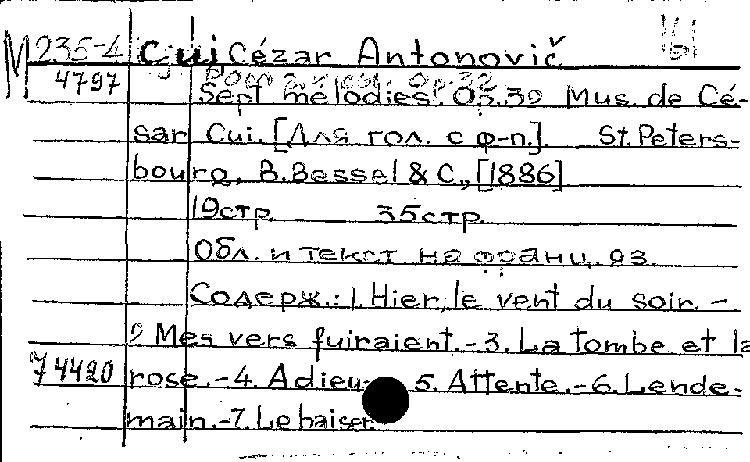 M 235-4 Cui Cézar Antonovič
4797 Sept mélodies. Op. 32 Mus. de Cé-
sar Cui. [Для гол. с ф-п.]. St. Peters-
bourg, B. Bessel & C., [1886]
19стр. 35стр.
Обл. и текст на франц. яз.
Содерж.: 1. Hier, le vent du soir. -
2 Mes vers fuiraient. - 3. La tombe et la
74420 rose. - 4. Adieu- 5. Attente. - 6. Lende-
main. - 7. Le baiser.